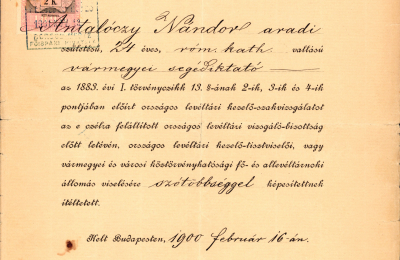 2 K
Antalóczy Nándor aradi
születésű, 24 éves, róm. kath. vallású
vármegyei segédiktató
az 1883. évi I. törvényczikk 13. §-ának 2-ik, 3-ik és 4-ik
pontjában előirt országos levéltári kezelő-szakvizsgálatot
az e czélra felállitott országos levéltári vizsgáló-bizottság
előtt letévén, országos levéltári kezelő-tisztviselői, vagy
vármegyei és városi köztörvényhatósági fő- és allevéltárnoki
állomás viselésére szótöbbséggel képesitettnek
itéltetett.
Kelt Budapesten, 1900 február 16-án.